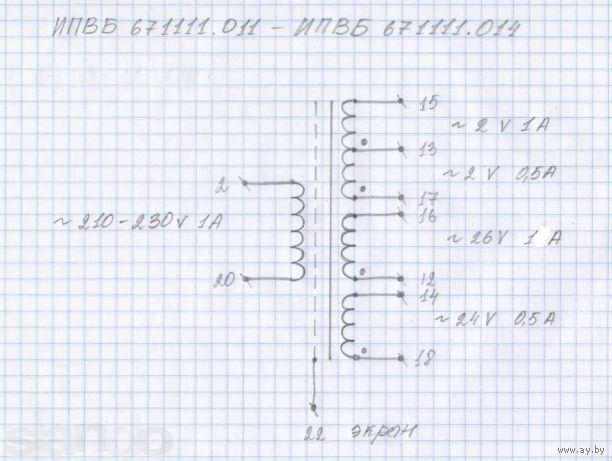 ИПВБ 671111.011 - ИПВБ 671111.014
15
~ 2 V 1 A
13
2
~ 2 V 0,5A
17
16
~ 210-230 V 1A
~ 26V 1 A
20
12
14
~ 24 V 0,5 A
18
22 экран
www.ay.by